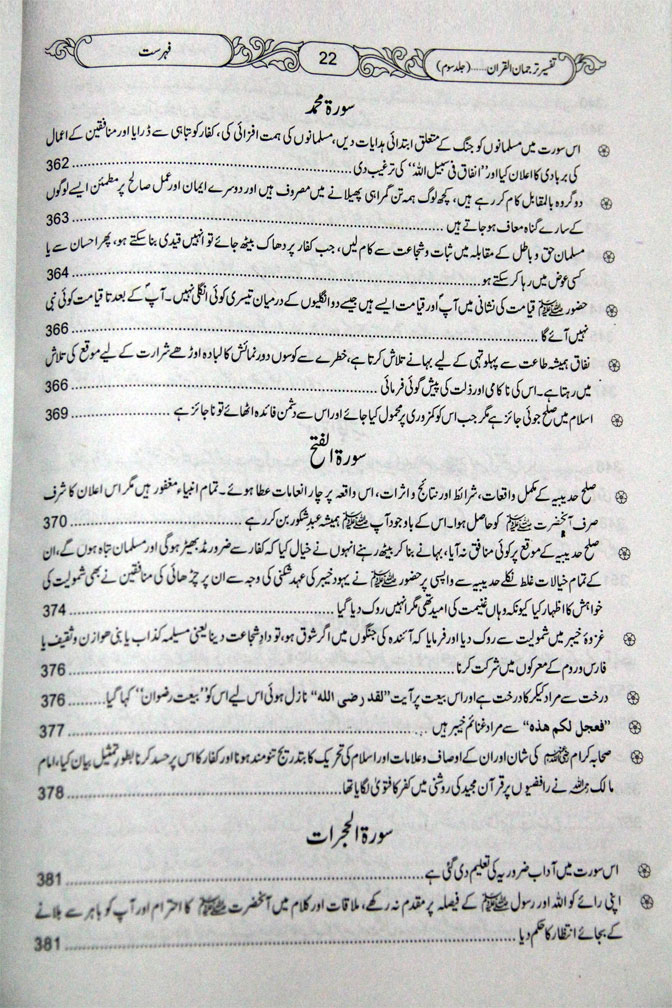 تفسیر ترجمان القرآن......(جلد سوم)
22
فہرست
سورۃ محمد
اس سورت میں مسلمانوں کو جنگ کے متعلق ابتدائی ہدایات دیں، مسلمانوں کی ہمت افزائی کی، کفار کو تباہی سے ڈرایا اور منافقین کے اعمال
کی بربادی کا اعلان کیا اور ’’انفاق فی سبیل اللہ‘‘ کی ترغیب دی ........ 362
دو گروہ بالمقابل کام کر رہے ہیں، کچھ لوگ ہمہ تن گمراہی پھیلانے میں مصروف ہیں اور دوسرے ایمان اور عمل صالح پر مطمئن ایسے لوگوں
کے سارے گناہ معاف ہو جاتے ہیں ........ 363
مسلمان حق و باطل کے مقابلہ میں ثبات و شجاعت سے کام لیں، جب کفار پر دھاک بیٹھ جائے تو انہیں قیدی بنا سکتے ہو، پھر احسان سے یا
کسی عوض میں رہا کر سکتے ہو ........ 364
حضور ﷺ قیامت کی نشانی میں آپؐ اور قیامت ایسے ہیں جیسے دو انگلیوں کے درمیان تیسری کوئی انگلی نہیں۔ آپؐ کے بعد تا قیامت کوئی نبی
نہیں آئے گا ........ 366
نفاق ہمیشہ طاعت سے پہلو تہی کے لیے بہانے تلاش کرتا ہے، خطرے سے کوسوں دور نمائش کا لبادہ اوڑھے شرارت کے لیے موقع کی تلاش
میں رہتا ہے۔ اس کی ناکامی اور ذلت کی پیش گوئی فرمائی ........ 366
اسلام میں صلح جوئی جائز ہے مگر جب اس کو کمزوری پر محمول کیا جائے اور اس سے دشمن فائدہ اٹھائے تو ناجائز ہے ........ 369
سورۃ الفتح
صلح حدیبیہ کے مکمل واقعات، شرائط اور نتائج و اثرات، اس واقعہ پر چار انعامات عطا ہوئے۔ تمام انبیاء مغفور ہیں مگر اس اعلان کا شرف
صرف آنحضرت ﷺ کو حاصل ہوا۔ اس کے باوجود آپ ﷺ ہمیشہ عبد شکور بن کر رہے ........ 370
صلح حدیبیہ کے موقع پر کوئی منافق نہ آیا، بہانے بنا کر بیٹھ رہے انہوں نے خیال کیا کہ کفار سے ضرور مڈبھیڑ ہو گی اور مسلمان تباہ ہوں گے، ان
کے تمام خیالات غلط نکلے حدیبیہ سے واپسی پر حضور ﷺ نے یہود خیبر کی عہد شکنی کی وجہ سے ان پر چڑھائی کی منافقین نے بھی شمولیت کی
خواہش کا اظہار کیا کیونکہ وہاں غنیمت کی امید تھی مگر انہیں روک دیا گیا ........ 374
غزوہ خیبر میں شمولیت سے روک دیا اور فرمایا کہ آئندہ کی جنگوں میں اگر شوق ہو، تو دادِ شجاعت دینا یعنی مسیلمہ کذاب یا بنی ھوازن و ثقیف یا
فارس و روم کے معرکوں میں شرکت کرنا ........ 376
درخت سے مراد کیکر کا درخت ہے اور اس بیعت پر آیت ”لقد رضی الله“ نازل ہوئی اس لیے اس کو ’’بیعت رضوان‘‘ کہا گیا ........ 376
”فعجل لکم هذه“ سے مراد غنائم خیبر ہیں ........ 377
صحابہ کرام کی شان اور ان کے اوصاف و علامات اور اسلام کی تحریک کا بتدریج تنومند ہونا اور کفار کا اس پر حسد کرنا بطور تمثیل بیان کیا، امام
مالک نے رافضیوں پر قرآن مجید کی روشنی میں کفر کا فتویٰ لگایا تھا ........ 378
سورۃ الحجرات
اس سورت میں آداب ضروریہ کی تعلیم دی گئی ہے ........ 381
اپنی رائے کو اللہ اور رسول ﷺ کے فیصلہ پر مقدم نہ رکھے، ملاقات اور کلام میں آنحضرت ﷺ کا احترام اور آپ کو باہر سے بلانے
کے بجائے انتظار کا حکم دیا ........ 381